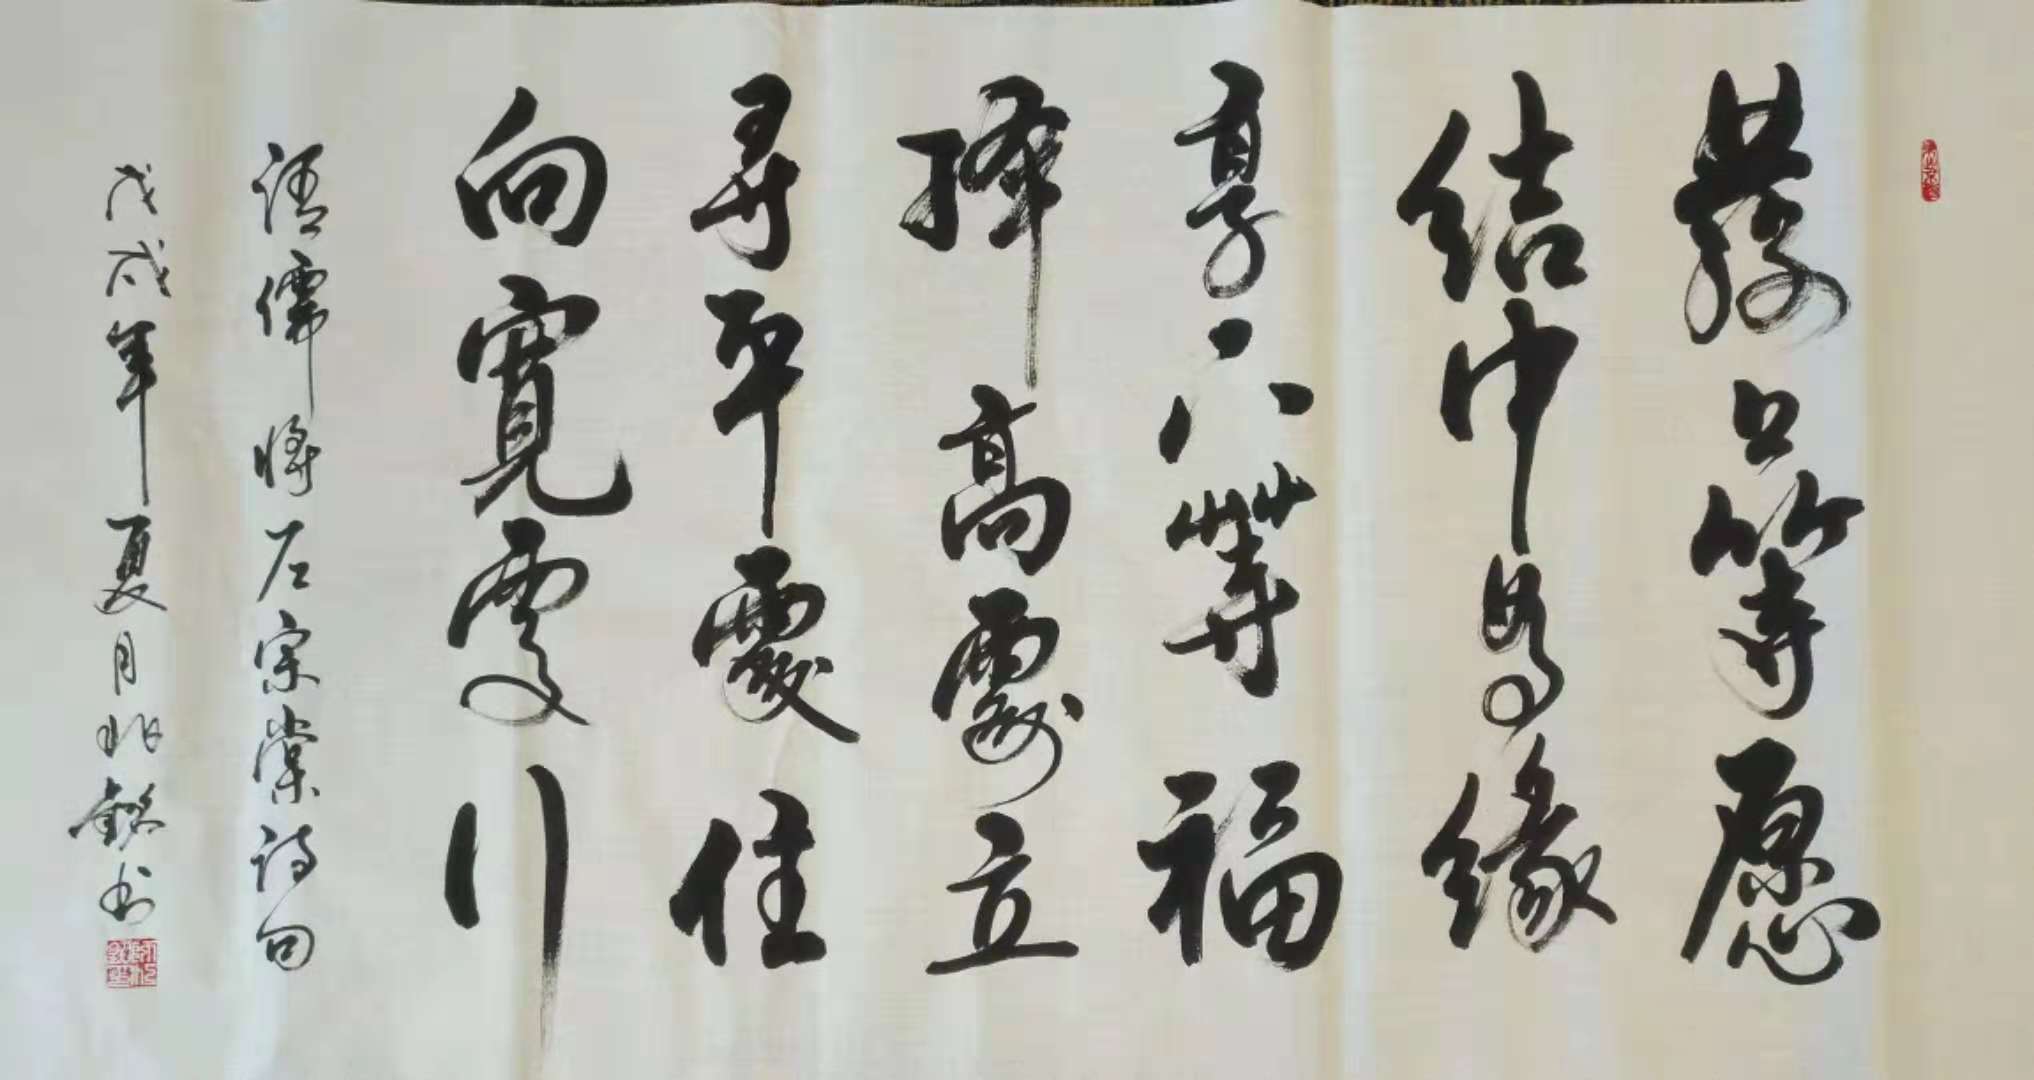 發上等愿
結中等緣
享下等福
擇高處立
尋平處住
向寬處行
清儒將左宗棠詩句
戊戌年夏月
書